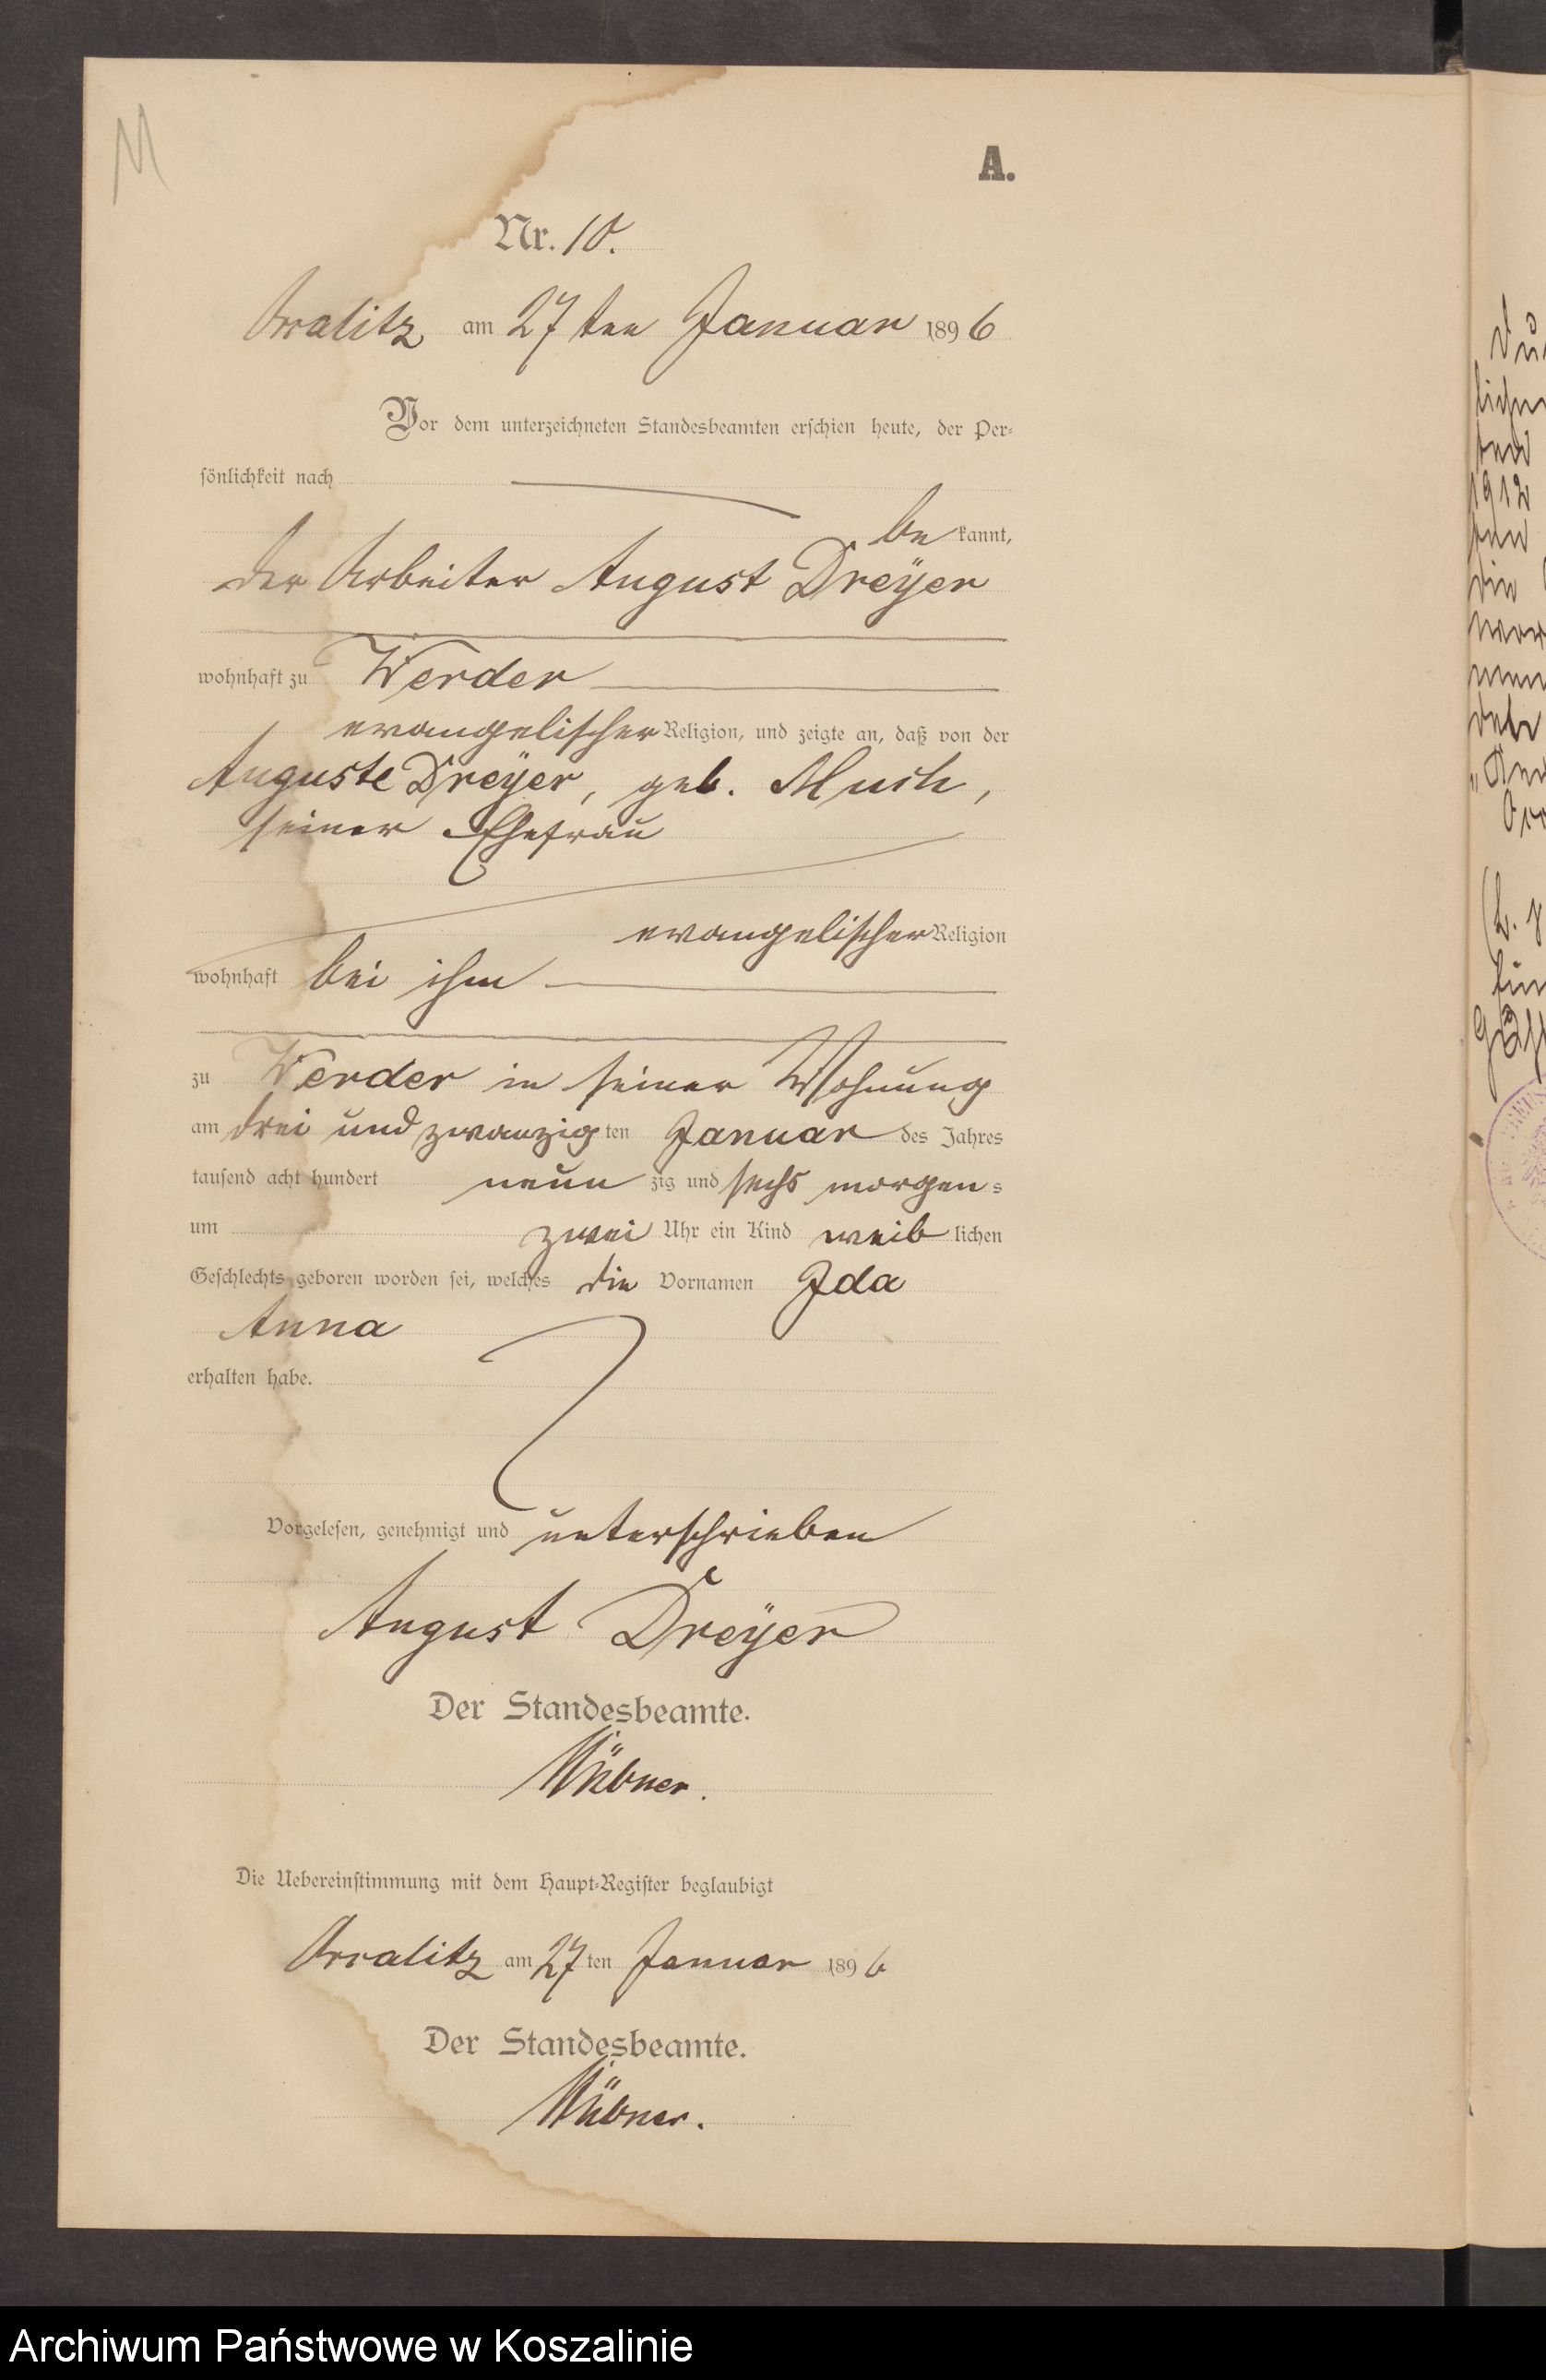 A.
Nr. 10.
am 27ten Januar 1896
Vor dem unterzeichneten Standesbeamten erschien heute, der Per-
sönlichkeit nach
be kannt,
der Arbeiter August Dreÿer
wohnhaft zu Werder
evangelischer Religion, und zeigte an, daß von der
Auguste Dreÿer, geb.
seiner Ehefrau
evangelischer Religion
wohnhaft bei ihm
zu Werder in seiner Wohnung
am drei und zwanzig ten Januar des Jahres
tausend acht hundert neun zig und sechs morgens
um zwei Uhr ein Kind weib lichen
Geschlechts geboren worden sei, welches die Vornamen Ida
Anna
erhalten habe.
Vorgelesen, genehmigt und unterschrieben
August Dreÿer
Der Standesbeamte.
Die Uebereinstimmung mit dem Haupt-Register beglaubigt
am 27 ten Januar 1896
Der Standesbeamte.
Archiwum Państwowe w Koszalinie